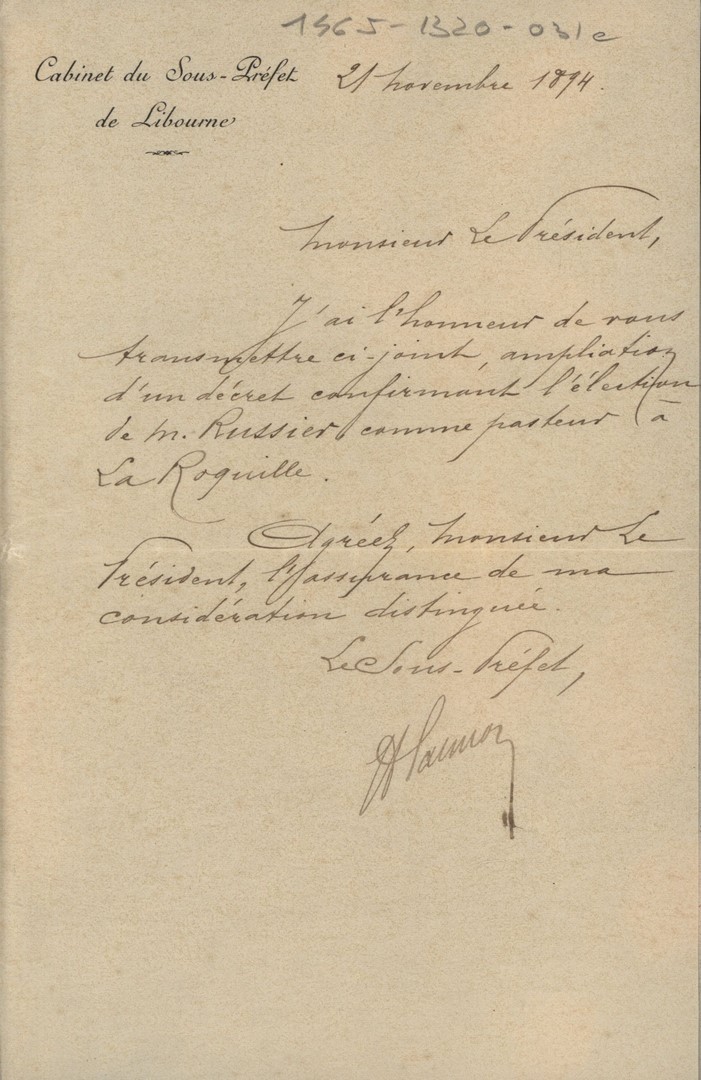 1965-1320-031c
Cabinet du Sous-Préfet
de Libourne
21 novembre 1894.
Monsieur Le Président,
J'ai l'honneur de vous
transmettre ci-joint, ampliation
d'un décret confirmant l'élection
de M. Russier comme pasteur à
La Roquille.
Agréez, Monsieur Le
Président, l'assurance de ma
considération distinguée.
Le Sous-Préfet,